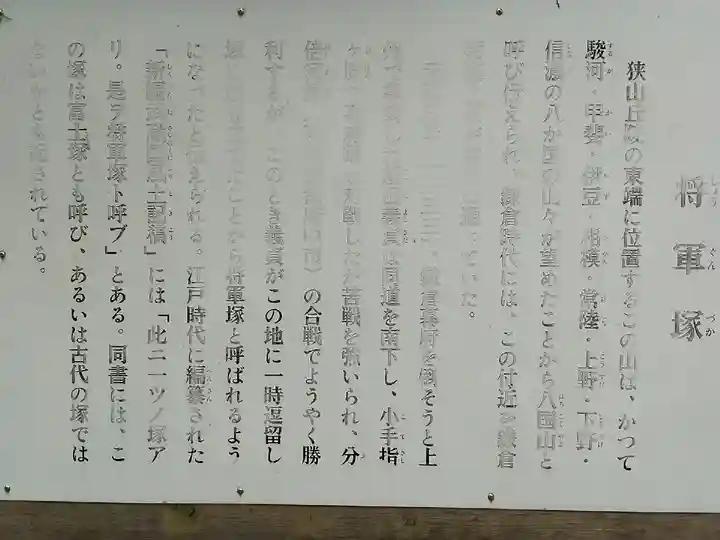 将軍塚
狭山丘陵の東端に位置するこの山は、かつて
駿河・甲斐・伊豆・相模・常陸・上野・下野・
信濃の八か国の山々が望めたことから八国山と
呼び伝えられ、鎌倉時代には、この付近を鎌倉
通っていた。
鎌倉幕府を倒そうと上
義貞は同道を南下し、小手指
苦戦を強いられ、分
の合戦でようやく勝
利するが、このとき義貞がこの地に一時逗留し
たことから将軍塚と呼ばれるよう
になったと伝えられる。江戸時代に編纂された
「新編武蔵風土記稿」には「此ニ一ツノ塚ア
リ。是ヲ将軍塚ト呼ブ」とある。同書には、こ
の塚は富士塚とも呼び、あるいは古代の塚では
ないかとも記されている。